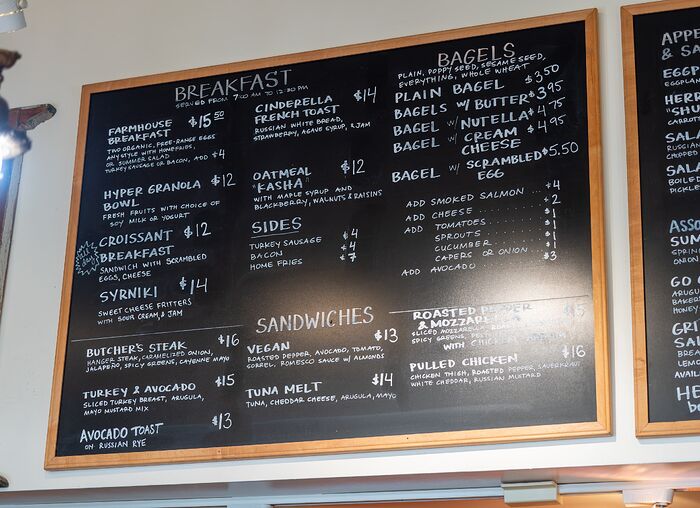 BREAKFAST
SERVED FROM 7:00 AM TO 12:30 PM
FARMHOUSE $15.50
BREAKFAST
TWO ORGANIC, FREE-RANGE EGGS
ANY STYLE WITH HOMEFRIES,
OR SUMMER SALAD
TURKEY SAUSAGE OR BACON, ADD $4
HYPER GRANOLA $12
BOWL
FRESH FRUITS WITH CHOICE OF
SOY MILK OR YOGURT
CROISSANT $12
BREAKFAST
SANDWICH WITH SCRAMBLED
EGGS, CHEESE
SYRNIKI $14
SWEET CHEESE FRITTERS
WITH SOUR CREAM, & JAM
CINDERELLA $14
FRENCH TOAST
RUSSIAN WHITE BREAD,
STRAWBERRY, AGAVE SYRUP, & JAM
OATMEAL $12
"KASHA"
WITH MAPLE SYRUP AND
BLACKBERRY, WALNUTS & RAISINS
SIDES
TURKEY SAUSAGE $4
BACON $4
HOME FRIES $7
BAGELS
PLAIN, POPPY SEED, SESAME SEED,
EVERYTHING, WHOLE WHEAT
PLAIN BAGEL $3.50
BAGELS W/ BUTTER $3.95
BAGEL W/ NUTELLA $4.75
BAGEL W/ CREAM $4.95
CHEESE
BAGEL W/ SCRAMBLED $5.50
EGG
ADD SMOKED SALMON ... $4
ADD CHEESE ... $2
ADD TOMATOES ... $1
SPROUTS ... $1
CUCUMBER ... $1
CAPERS OR ONION ... $1
ADD AVOCADO ... $3
SANDWICHES
BUTCHER'S STEAK $16
HANGER STEAK, CARAMELIZED ONION,
JALAPEÑO, SPICY GREENS, CAYENNE MAYO
TURKEY & AVOCADO $15
SLICED TURKEY BREAST, ARUGULA,
MAYO MUSTARD MIX
AVOCADO TOAST $13
ON RUSSIAN RYE
VEGAN $13
ROASTED PEPPER, AVOCADO, TOMATO,
SORREL, ROMESCO SAUCE W/ ALMONDS
TUNA MELT $14
TUNA, CHEDDAR CHEESE, ARUGULA, MAYO
ROASTED PEPPER $15
& MOZZARELLA
SLICED MOZZARELLA, ROASTED
SPICY GREENS,
WITH
PULLED CHICKEN $16
CHICKEN THIGH, ROASTED PEPPER, SAUERKRAUT
WHITE CHEDDAR, RUSSIAN MUSTARD
APPE
& SA
EGGP
EGGPL
HER
"SHU
CARROTS
SALA
RUSSIA
CHOPPED
SALA
BOILED
PICKLE
ASSO
SUN
SPRING
ONION
GO G
ARUGU
BAKED
HONEY
GRI
SALA
BREA
LEMO
AVAILA
HE
be